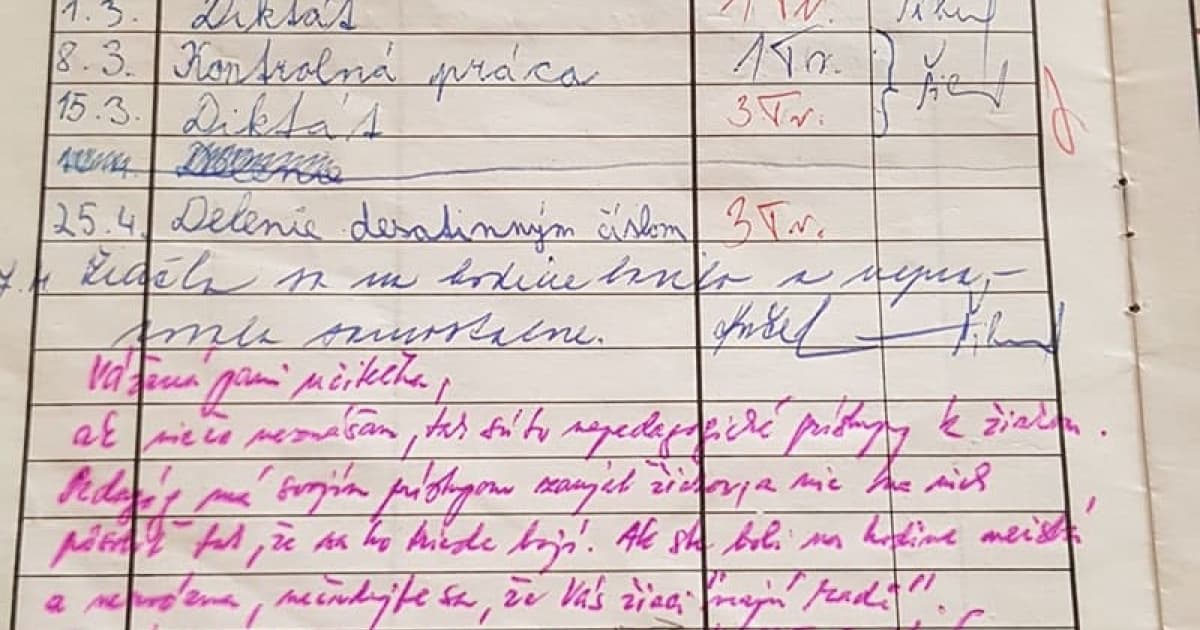 1.3. Diktát 1 Tr.
8.3. Kontrolná práca 1 Tr.
15.3. Diktát 3 Tr.
25.4. Delenie desatinným číslom 3 Tr.
Žiačka sa na hodine bavila a nepra-
covala samostatne.
Vážená pani učiteľka,
ak niečo neznášam, tak sú to nepedagogické prístupy k žiakom.
Pedagóg má svojím prístupom zaujať žiakov, a nie na nich
pôsobiť tak, že sa ho trieda bojí. Ak ste boli na hodine neistá
a nervózna, nečudujte sa, že Vás žiaci "majú radi"